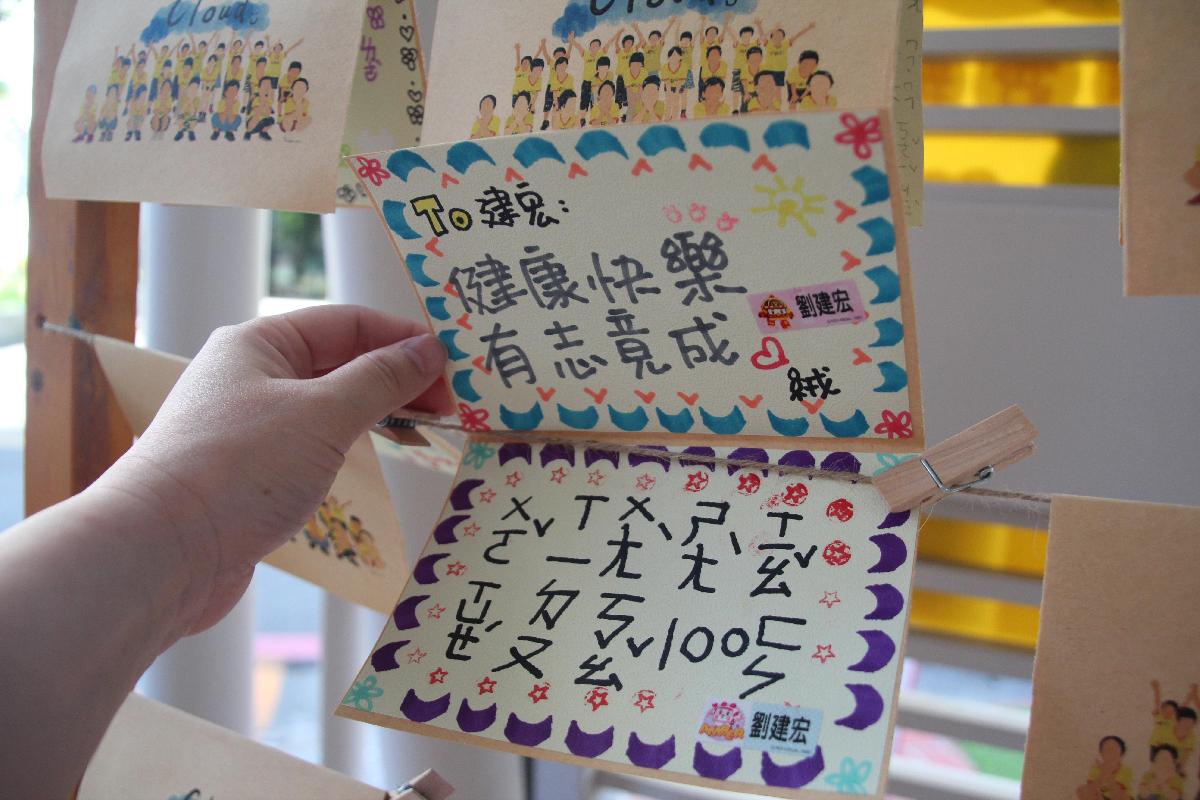 Cloud
Cloud
To 建宏:
健康快樂
有志竟成
劉建宏
絨
ㄨㄛˇ ㄒㄧ ㄨㄤˋ ㄕㄤˋ ㄒㄧㄠˇ
ㄒㄩㄝˊ ㄉㄡ ㄎㄠˇ 100 ㄈㄣ
劉建宏